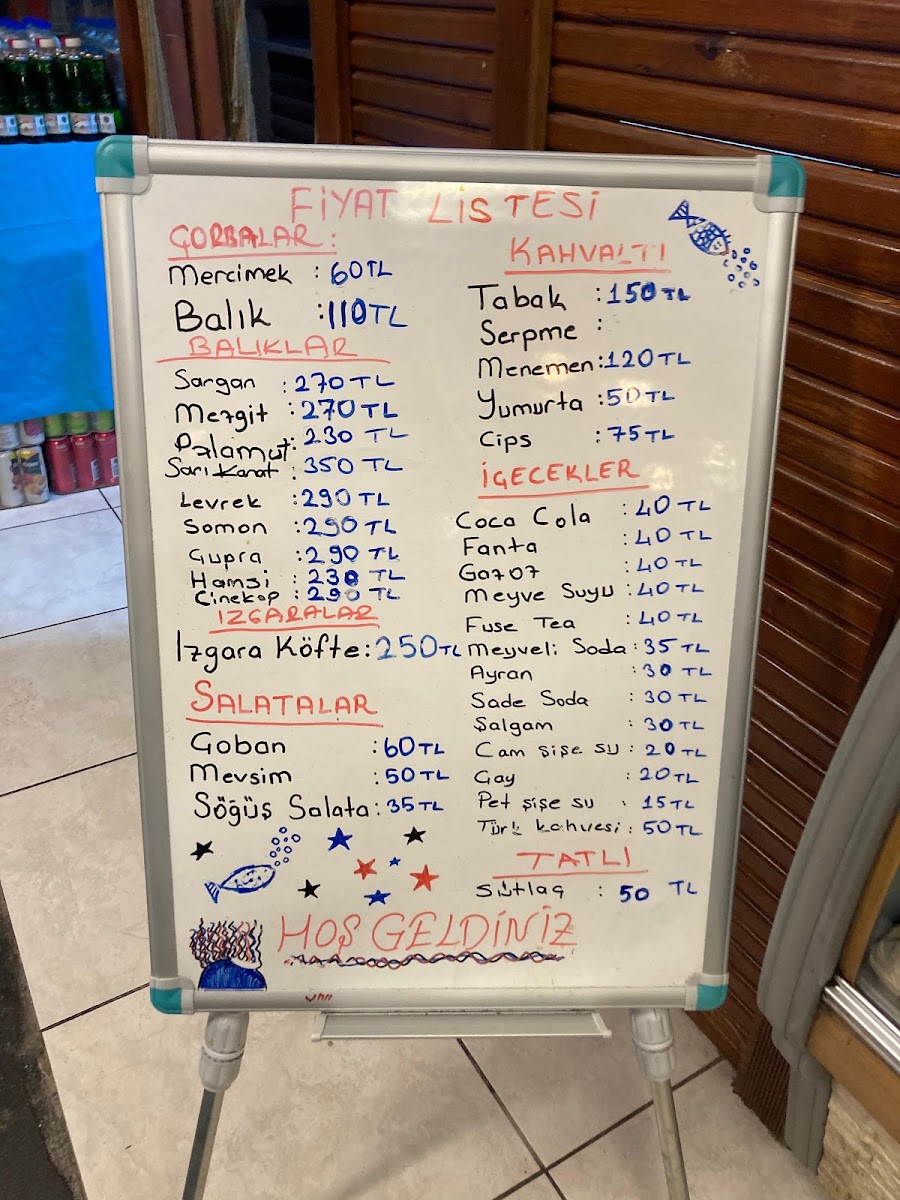 FİYAT LİSTESİ
ÇORBALAR :
Mercimek : 60 TL
Balık : 110 TL
BALIKLAR
Sargan : 270 TL
Mezgit : 270 TL
Palamut : 230 TL
Sarı Kanat : 350 TL
Levrek : 290 TL
Somon : 290 TL
Çupra : 290 TL
Hamsi : 230 TL
Cinekop : 290 TL
IZGARALAR
Izgara Köfte : 250 TL
SALATALAR
Çoban : 60 TL
Mevsim : 50 TL
Söğüş Salata : 35 TL
KAHVALTI
Tabak : 150 TL
Serpme :
Menemen : 120 TL
Yumurta : 50 TL
Cips : 75 TL
İÇECEKLER
Coca Cola : 40 TL
Fanta : 40 TL
Gazoz : 40 TL
Meyve Suyu : 40 TL
Fuse Tea : 40 TL
Meyveli Soda : 35 TL
Ayran : 30 TL
Sade Soda : 30 TL
Şalgam : 30 TL
Cam şişe su : 20 TL
Çay : 20 TL
Pet şişe su : 15 TL
Türk kahvesi : 50 TL
TATLI
Sütlaç : 50 TL
HOŞ GELDİNİZ